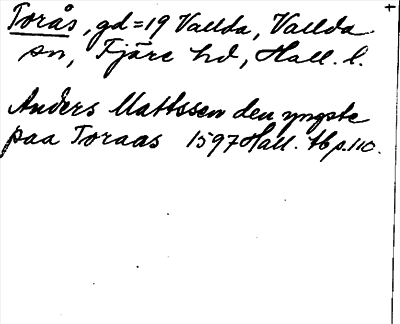 Torås, gd = 19 Vallda, Vallda
sn, Fjäre hd, Hall. l.
Anders Mattssen den yngste
paa Toraas 1597 Hall. tb p. 110.